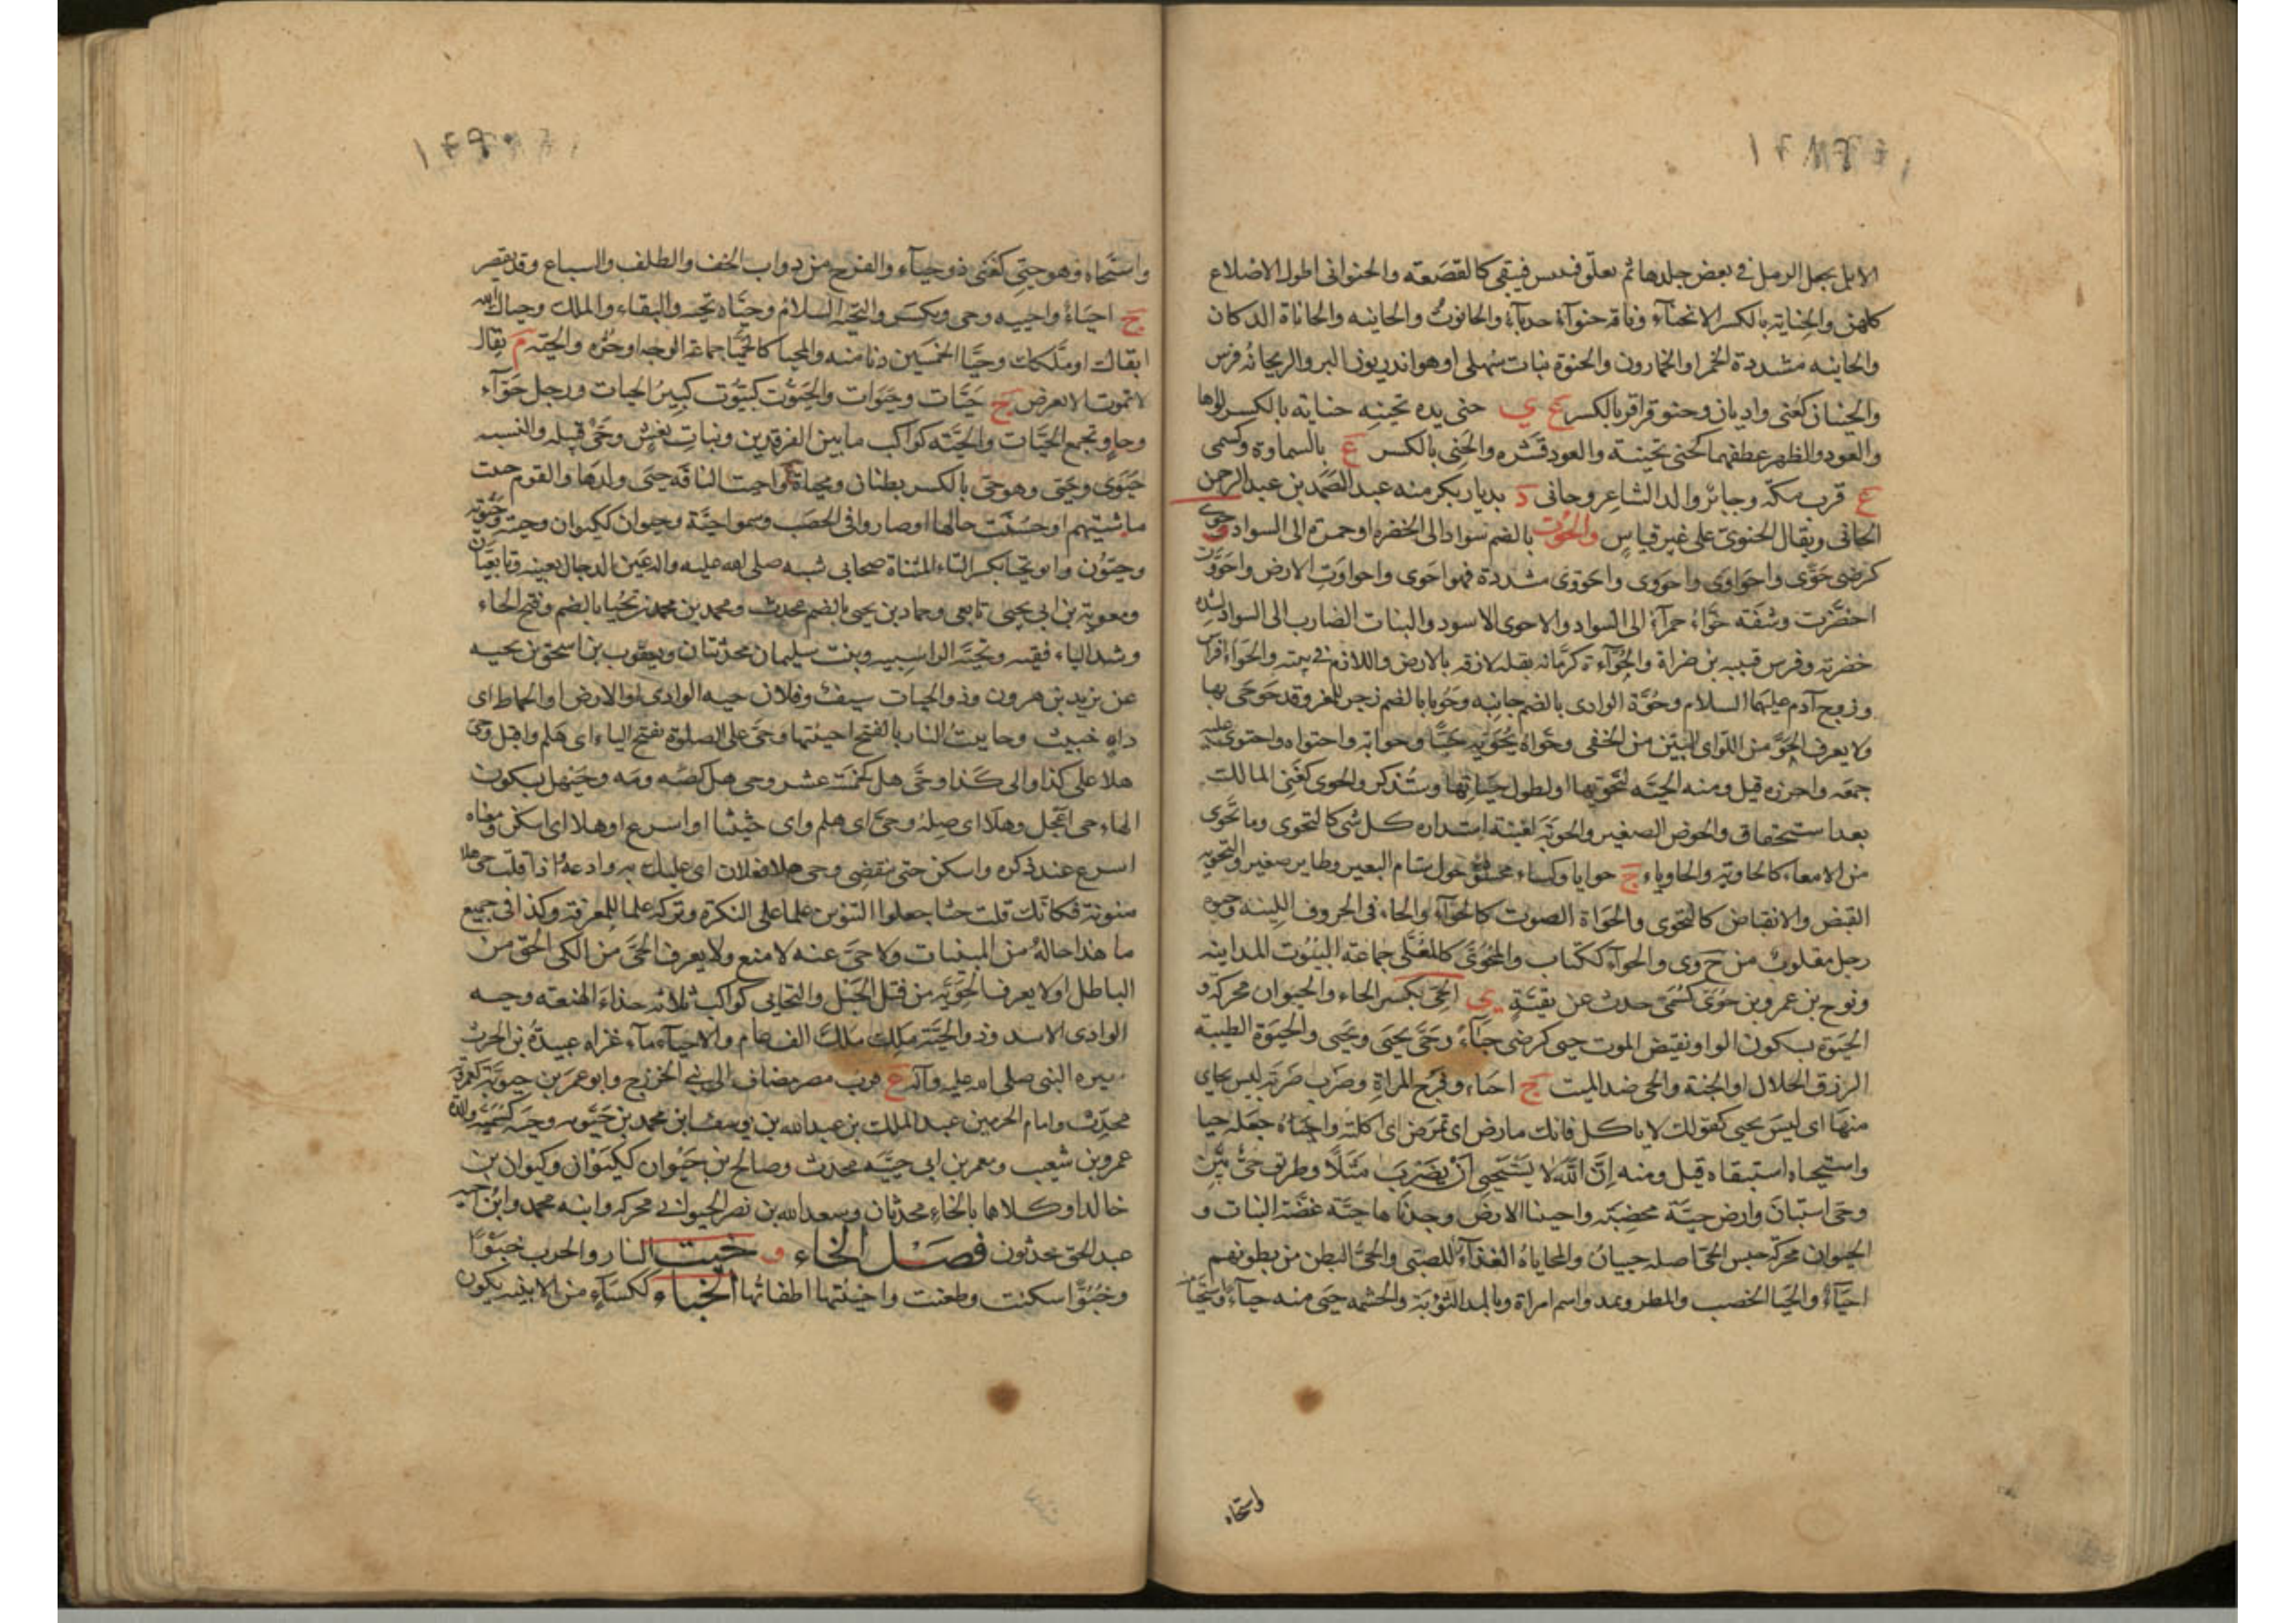 الابل يجعل الرمل في بعض جلدها ثم يعلق فييبس فيبقى كالقصعة والحنواني اطول الاضلاع
كلهن والحناية بالكسر الانحناء وناقة حنوآء حدبآء والحانوت والحانيه والحاناة الدكان
والحانيه مشددة الخمر او الخمارون والحنوة نبات سهلي او هو اذريون البر والريحانه فرس
والحنيان كغنى واديان وحنو قراقر بالكسر ع ي حنى يده تحنيه حنايه بالكسر لواها
والعود والظهر عطفهما كحنى تحنية والعود قشره والحنى بالكسر ع بالسماوة وكسمى
ع قرب مكة وجابر والد الشاعر وحانى د بديار بكر منه عبد الصمد بن عبد الرحمن
الحانى ويقال الحنوى على غير قياس والحوت بالضم سواد الى الخضره او حمرة الى السواد وحوى
كرضى حوى واحواوى واحووى واحووى مشددة فهو احوى واحواوت الارض واحووت
اخضرت وشفة حواء حمرآء الى السواد والاحوى الاسود والنبات الضارب الى السواد لشدة
خضرته وفرس قتيبه بن ضرار والحوآءة كرمانه بقله لازقه بالارض واللازم في بيته والحواء افراس
وزوج آدم عليهما السلام وحوة الوادى بالضم جانبه وحو بابالضم زجر للمعز وقد حوحى بها
ولا يعرف الحو من اللو اى البين من الخفى وحواه يحويه حيا وحواية واحتواه واحتوى عليه
جمعه واحرزه قيل ومنه الحية لتحويها او لطول حياتها وتذكر والحوى كغنى المالك
بعد استحقاق والحوض الصغير والحوية كغنية استداره كل شى كالتحوى وما تحوى
من الامعاء كالحاوية والحاوياء ج حوايا وكساء محشو حول سنام البعير وطاير صغير والتحويه
القبض والانقباض كالتحوى والحواة الصوت كالحوآء والحاء فى الحروف اللينه وحيوه
رجل مقلوب من ح وى والحوآء ككتاب والمحوى كالمعلى جماعة البيوت المدانيه
ونوح بن عمرو بن حوى كسمى حدث عن بقية ي الحى بكسر الحاء والحيوان محركة و
الحيوة بسكون الواو نقيض الموت حيى كرضى حيآء وحى يحيى ويحيى والحيوة الطيبة
الرزق الحلال او الجنة والحى ضد الميت ج احياء وفرج المراة وضرب ضربة ليس بحاى
منها اى ليس يحيى كقولك لا ياكل فانك مارض اى تمرض ان اكلته واحياه جعله حيا
واستحياه استبقاه قيل ومنه ان الله لا يستحيى ان يضرب مثلا وطريق حى بين
وحى استبان وارض حية مخصبة واحيينا الارض وجدناها حية غضة النبات و
الحيوان محركة جنس الحى اصله حييان والمحاياة الغذآء للصبى والحى البطن من بطونهم
احيآء والحيا الخصب والمطر ويمد واسم امراة وبالمد التوبة والحشمه حيى منه حيآء واستحيا
واستحياه
واستحياه وهو حيى كغنى ذو حيآء والفرج من ذوات الخف والظلف والسباع وقد يقصر
ج احياء واحييه وحى ويكسر والتحيه السلام وحياه تحيه والبقاء والملك وحياك الله
ابقاك او ملكك وحيا الخمسين دنا منه والمحيا كالحميا جماعة الوجه او حره والحية م يقال
لا تموت الا بعرض ج حيات وحيوات والحيوت كتنوت كبير الحيات ورجل حوآء
وحاو يجمع الحيات والحيه كواكب ما بين الفرقدين وبنات نعش وحى قبيله والنسبه
حيوى وحيى وهو حى بالكسر بطنان ومحياة ع واحيت الناقه حيى ولدها والقوم حيت
ماشيتهم او حسنت حالها او صاروا فى الخصب وسموا حية وحيوان ككيوان وحيية وحيوته
وحيون وابو تحيا بكسر التاء المثناة صحابى شبه صلى الله عليه واله عين الدجال بعينه وتابعيان
ومعوية بن ابي يحيى تابعى وحماد بن يحيى بالضم محدث ومحمد بن محمد بن تحيا بالضم وفتح الحاء
وشد الياء فقيه وتحية الراسبيه وبنت سليمان محدثتان ويعقوب بن اسحق بن تحيه
عن يزيد بن هرون وذو الحيات سيف وفلان حيه الوادى او الارض او الحماط اى
داه خبيث وحاييت النار بالفتح احييتها وحى على الصلوة بفتح الياء اى هلم واقبل وحى
هلا على كذا والى كذا وحى هل كخمسة عشر وحى هل كصه ومه وحيهل بسكون
الهاء حى اعجل وهلا اى صله وحى اى هلم واى حثيثا او اسرع او هلا اى اسكن ومعناه
اسرع عند ذكره واسكن حتى ينقضى وحى هلا فلان اى عليك به وادعه اذا قلت حى هلا
منونة فكانك قلت حثا جعلوا التنوين علما على النكرة وتركه علما للمعرفة وكذا فى جميع
ما هذا حاله من المبنيات ولا حى عنه لا منع ولا يعرف الحى من اللى الحق من
الباطل او لا يعرف الحوية من فتل الحبل والتحايى كواكب ثلاثه حذاء الهنعة وحيه
الوادى الاسد وذو الحية ملك ملك الف عام والاحيآء مآء غزاه عبيدة بن الحرث
سيره النبى صلى الله عليه وآله ع قرب مصر مضاف الى بني الخزرج وابو عمر بن حيوية كعمروية
محدث وامام الحرمين عبد الملك بن عبدالله بن يوسف ابن محمد بن حيويه وحيه كسميه والدة
عمرو بن شعيب ومعمر بن ابي حييه محدث وصالح بن حيوان ككيوان وكيوان بن
خالد او كلاهما بالخاء محدثان وسعد الله بن نصر الحيواني محركه وابنه محمد وابن اخيه
عبد الحق محدثون فصل الخاء و خبت النار والحرب خبوا
وخبوا سكنت وطفئت واخبيتها اطفاتها الخباء ككسآء من الابنيه يكون